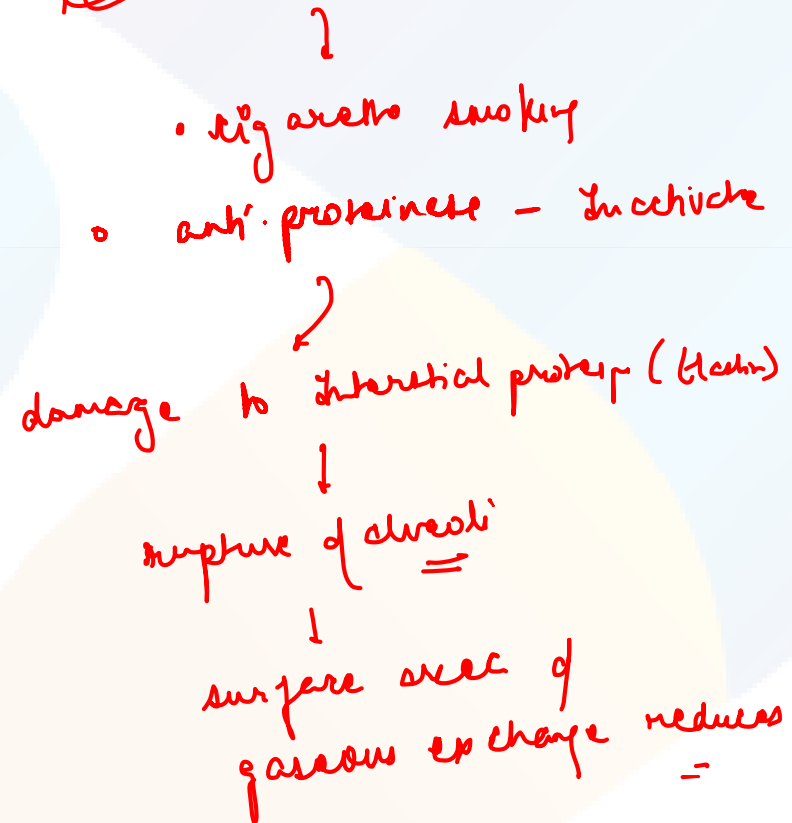 • cigarette smoking
• anti-proteinese - Inactivate
damage to Interstial protein (Elastin)
rupture of alveoli
surface area of
gaseous exchange reduces